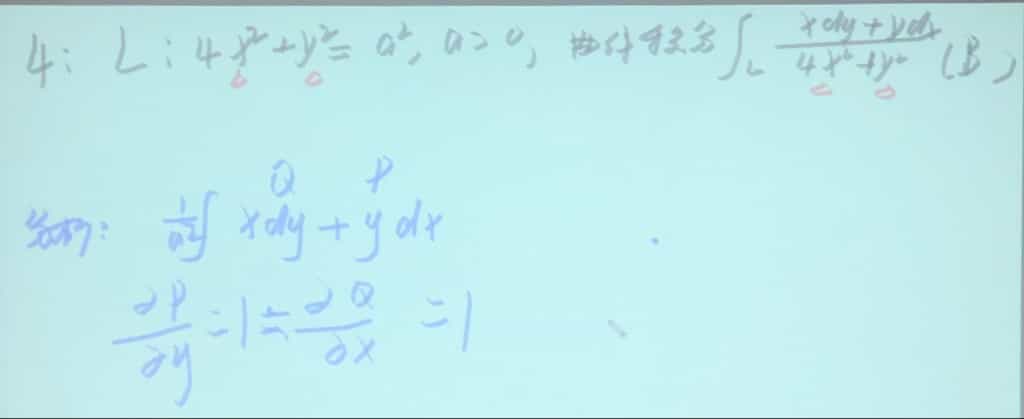 4: L: 4x²+y²=a², a>0, 曲线积分∫_L (xdy+ydx)/(4x²+y²) (B)
Q P
解析: 1/a² ∫ xdy+ydx
∂P/∂y=1=∂Q/∂x=1